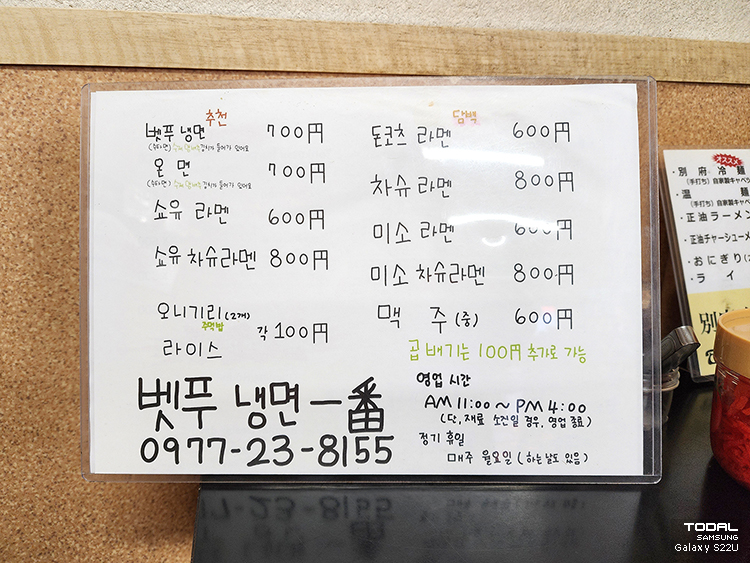 추천
벳푸 냉면 700円
(수타면)
온 면 700円
(수타면)
쇼유 라멘 600円
쇼유 차슈라멘 800円
오니기리(2개)
주먹밥
라이스
각 100円
담백
돈코츠 라멘 600円
차슈 라멘 800円
미소 라멘 600円
미소 차슈라멘 800円
맥 주 (중) 600円
곱배기는 100円 추가로 가능
벳푸 냉면 一番
0977-23-8155
영업 시간
AM 11:00 ~ PM 4:00
(단, 재료 소진일 경우, 영업 종료)
정기 휴일
매주 월요일 (하는날도 있음)
オススメ
・別府冷麺
(手打ち) 自家製キャベツ
・温 麺
(手打ち) 自家製キャベツ
・正油ラーメン
・正油チャーシューメ
・おにぎり(2
・ライ
別
TODAL
SAMSUNG
Galaxy S22U